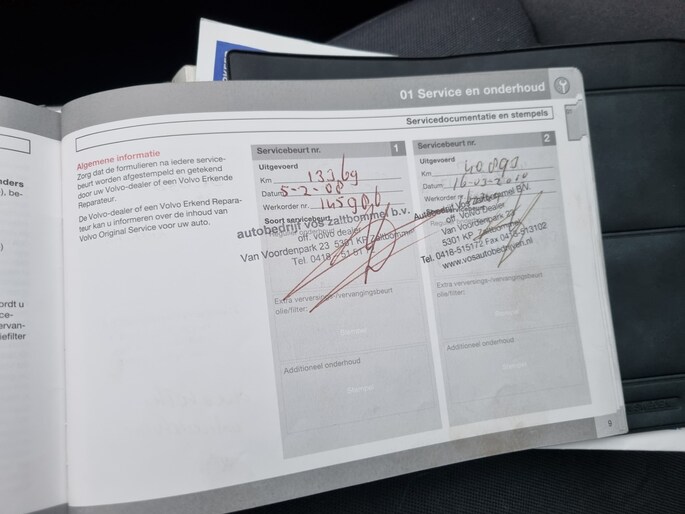 01 Service en onderhoud
Servicedocumentatie en stempels
Algemene informatie
Zorg dat de formulieren na iedere service-
beurt worden afgestempeld en getekend
door uw Volvo-dealer of een Volvo Erkende
Reparateur.
De Volvo-dealer of een Volvo Erkend Repara-
teur kan u informeren over de inhoud van
Volvo Original Service voor uw auto.
nders
), be-
)
ordt u
ce-
ervan-
iefilter
Servicebeurt nr. 1
Uitgevoerd
Km
Datum 5-2-08
Werkorder nr.
Soort servicebeurt
autobedrijf vos zaltbommel b.v.
off. volvo dealer
Van Voordenpark 23 5301 KP Zaltbommel
Tel. 0418
Extra verversings-/vervangingsbeurt
olie/filter:
Stempel
Additioneel onderhoud
Stempel
Servicebeurt nr. 2
Uitgevoerd
Km
Datum 16-03-2010
Werkorder nr.
off. Volvo Dealer
Van Voordenpark 23
5301 KP Zaltbommel
Tel. 0418-515172 Fax 0418-513102
www.vosautobedrijven.nl
Extra verversings-/vervangingsbeurt
olie/filter:
Stempel
Additioneel onderhoud
Stempel
9